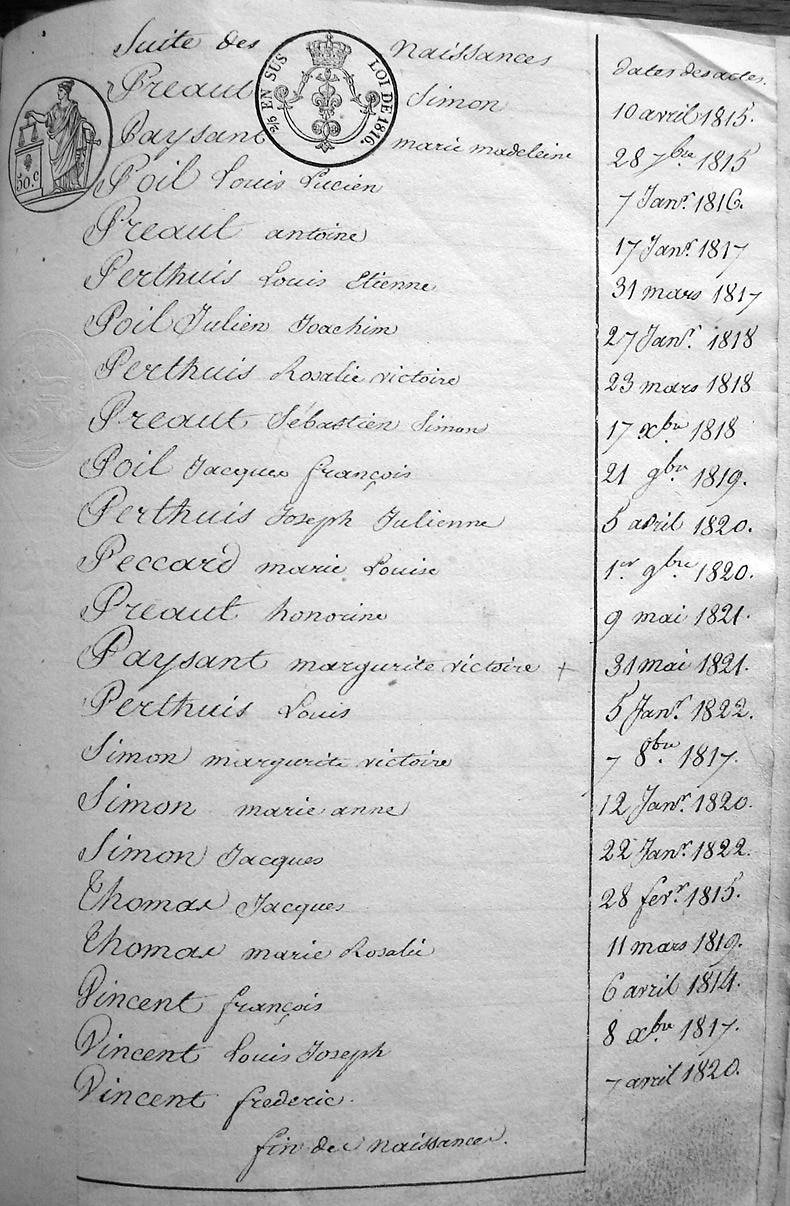 Suite des naissances dates des actes.
2/5 EN SUS LOI DE 1816.
50.c
Preaut Simon 10 avril 1815.
Paysant marie madeleine 28 7bre 1815
Poil Louis Lucien 7 Janr. 1816.
Preaut antoine 17 Janr. 1817
Perthuis Louis Etienne 31 mars 1817
Poil Julien Joachim 27 Janr. 1818
Perthuis Rosalie victoire 23 mars 1818
Preaut Sébastien Simon 17 xbre 1818
Poil Jacques françois 21 9bre 1819.
Perthuis Joseph Julienne 5 avril 1820.
Peccard marie Louise 1er 9bre 1820.
Preaut honorine 9 mai 1821.
Paysant margurite victoire + 31 mai 1821.
Perthuis Louis 5 Janr. 1822.
Simon margurite victoire 7 8bre 1817.
Simon marie anne 12 Janr. 1820.
Simon Jacques 22 Janr. 1822.
Thomas Jacques 28 fevr. 1815.
Thomas marie Rosalie 11 mars 1819.
Vincent françois 6 avril 1814.
Vincent Louis Joseph 8 xbre 1817.
Vincent frederic. 7 avril 1820.
fin des naissances.